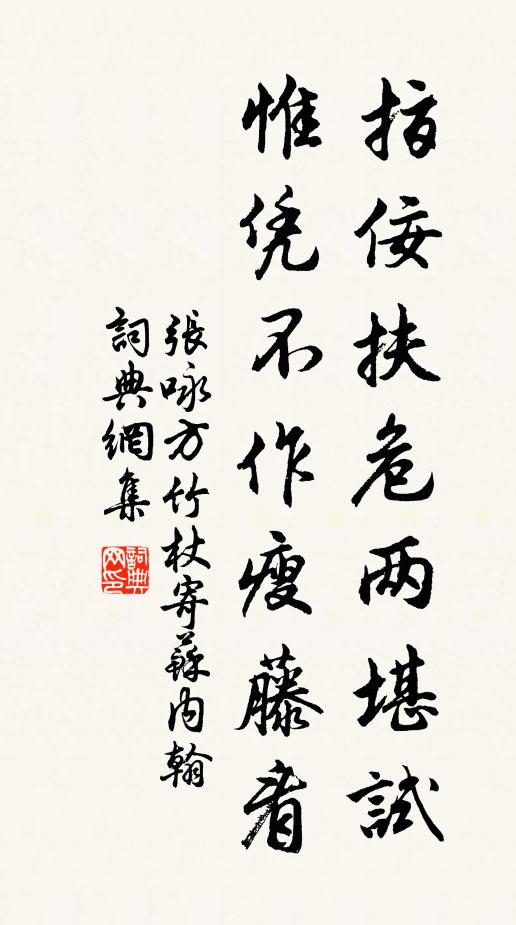 指佞扶危两堪試
惟凭不作瘦藤看
張咏方竹杖寄蘇内翰
詞典網集
詞典网印